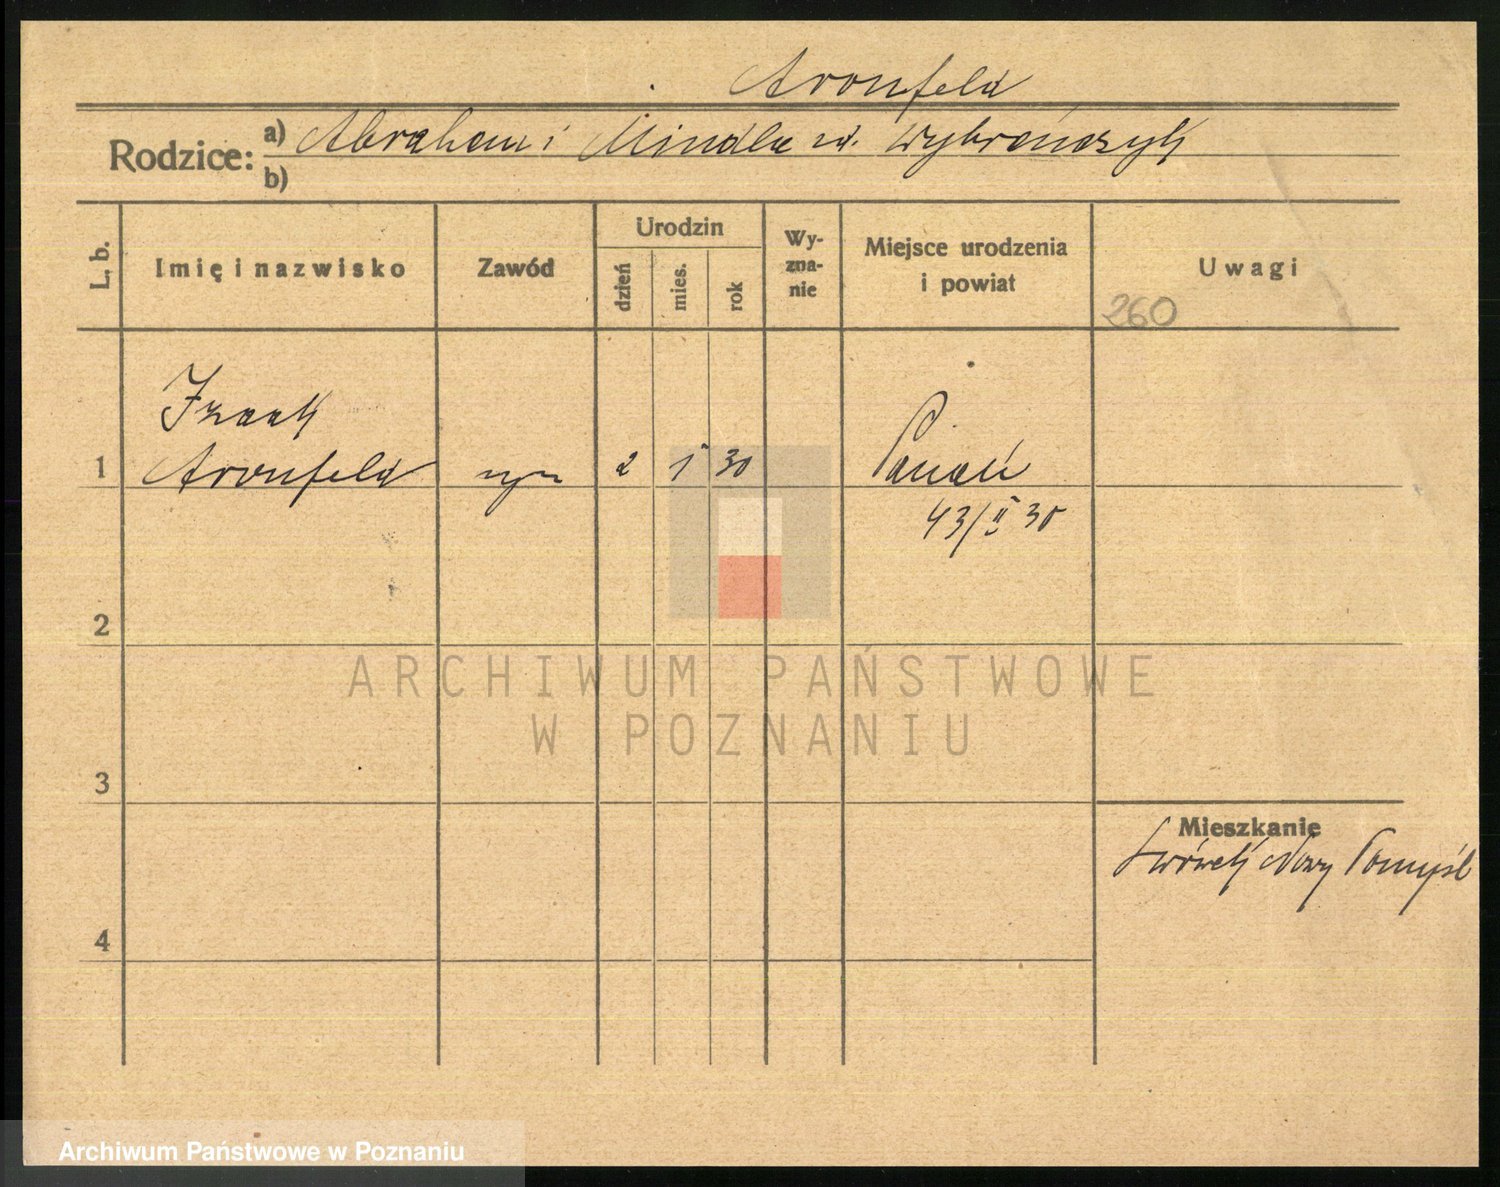 Aronfeld
Rodzice: a) Abraham i Mindla zd. Wybrańczyk
b)
L. b. Imię i nazwisko Zawód Urodzin dzień mies. rok Wyzna-nie Miejsce urodzenia i powiat Uwagi
260
Izaak
1 Aronfeld syn 2 I 30 Poznań
43/II 30
2
3
Mieszkanie
Lwówek Nowy Tomyśl
4
ARCHIWUM PAŃSTWOWE
W POZNANIU
Archiwum Państwowe w Poznaniu